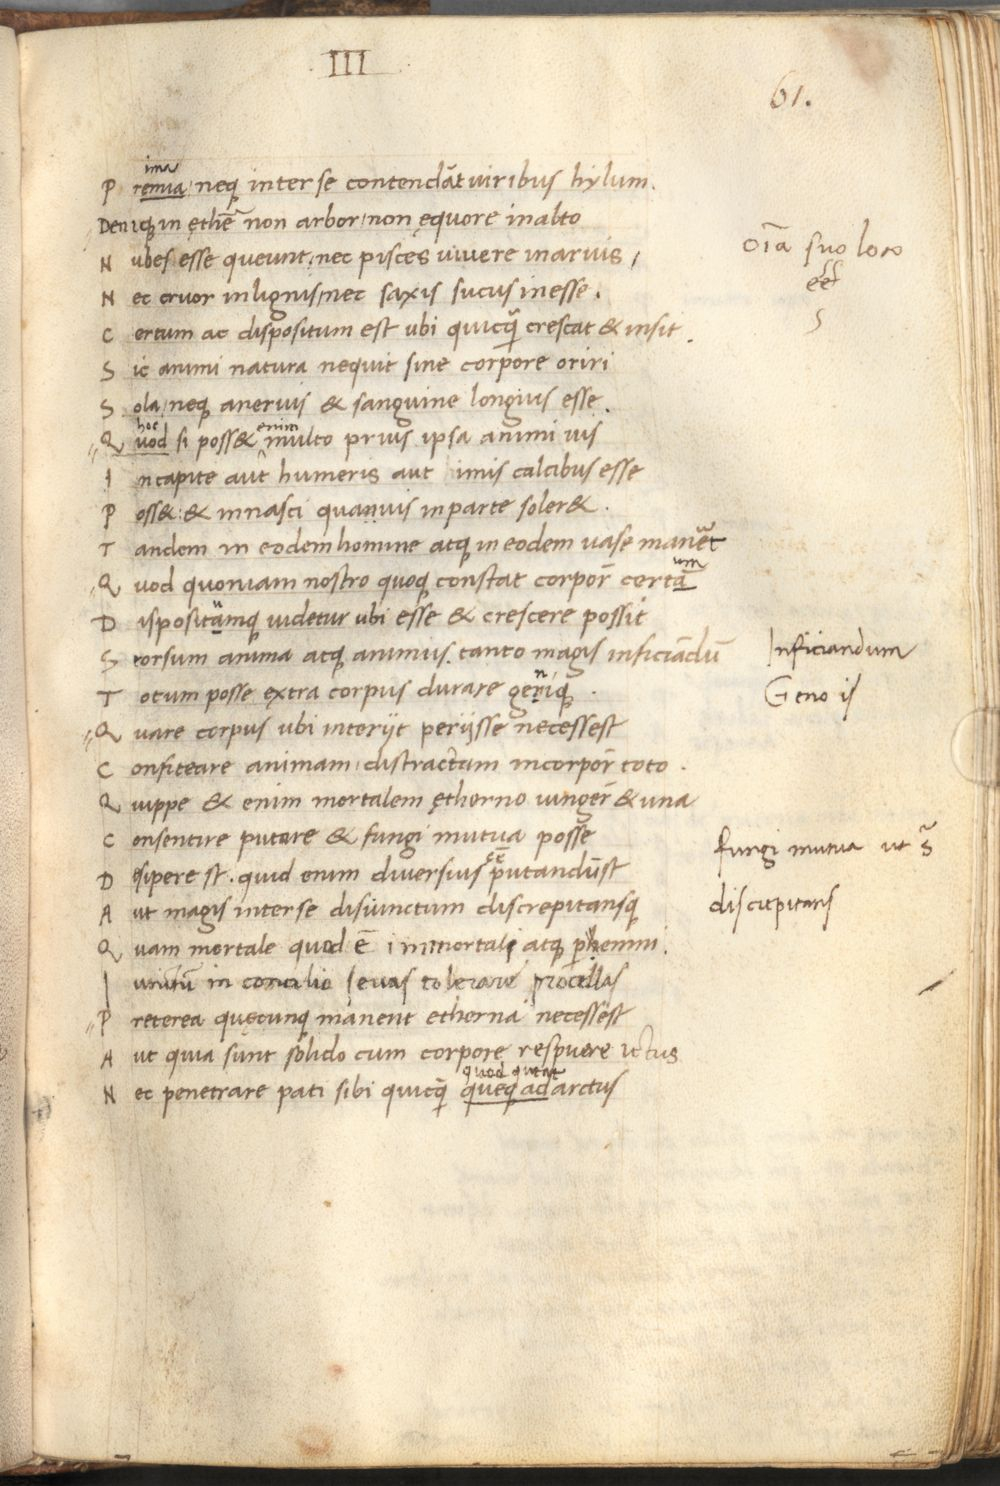 III
61.
ima
P remia neq inter se contendāt uiribus hylum.
Denicq in ęthē non arbor non ęquore in alto
N ubes esse queunt nec pisces uiuere in aruis
N ec cruor in lignis nec saxis sucus inesse.
C ertum ac dispositum est ubi quicq̄ crescat & insit.
S ic animi natura nequit sine corpore oriri
S ola neq a neruis & sanguine longius esse.
hoc enim
Q uod si poss& multo prius ipsa animi uis
I n capite aut humeris aut imis calcibus esse
P oss& & innasci quamuis in parte soler&.
T andem in eodem homine atq in eodem uase manēt
um
Q uod quoniam nostro quoq constat corpor̄ certā
u
D ispositāmq uidetur ubi esse & crescere possit
S eorsum anima atq animus. tanto magis inficiādū
n
T otum posse extra corpus durare geniq.
Q uare corpus ubi interijt perijsse necessest
C onfiteare animam distractam in corpor̄ toto.
Q uippe & enim mortalem ętherno iunger̄ & una
C onsentire putare & fungi mutua posse
eē
D esipere st. quid enim diuersius putandūst
A ut magis inter se disiunctum discrepitansq
Q uam mortale quod ē immortali atq perhemni.
I unctū in concilio seuas tolerare procellas
P reterea quęcunq manent etherna necessest
A ut quia sunt solido cum corpore respuere ictus
quod queat
N ec penetrare pati sibi quicq̄ queq ad arctus
oīa suo loco
eēt
S
Inficiandum
Geno is
fungi mutua ut s̄
discitpitans